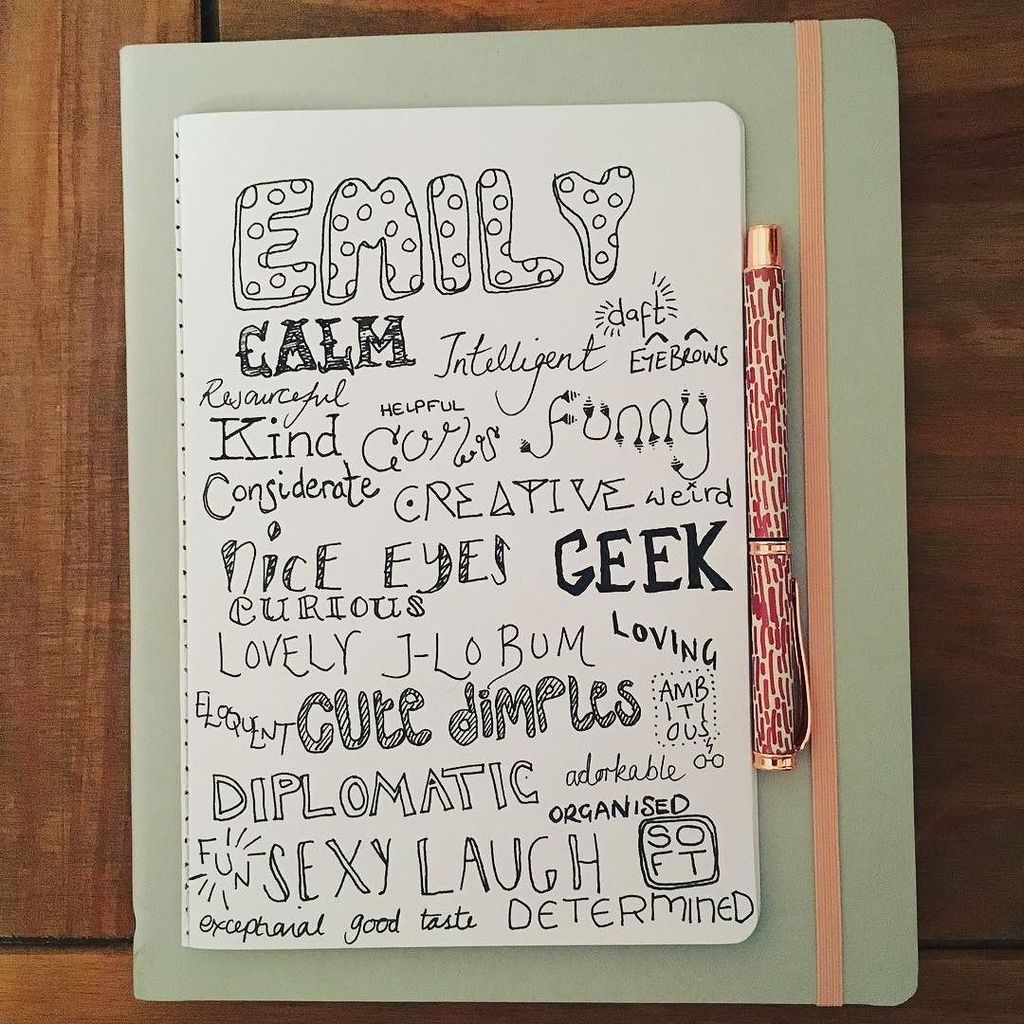 EMILY
daft
CALM Intelligent EYEBROWS
Resourceful HELPFUL
Kind Curls funny
Considerate CREATIVE weird
NiCE EYES GEEK
CURIOUS
LOVELY J-LO BUM LOVING
ELOQUENT CUte dimPles AMB
ITI
OUS
DIPLOMATIC adorkable
ORGANISED
FUN SEXY LAUGH SO
FT
exceptional good taste DETERMINED